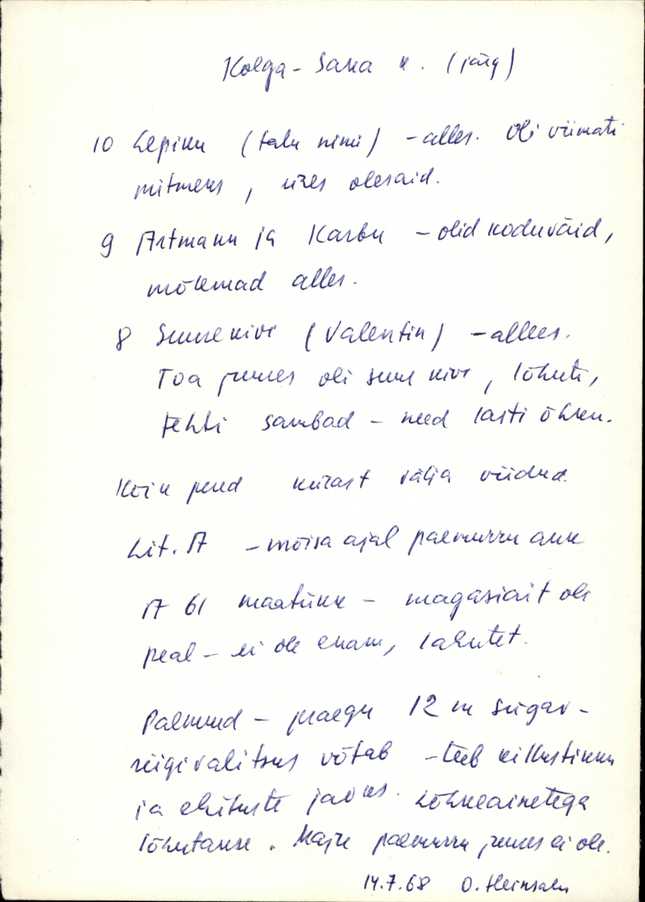 Kolga-Saka k. (järg)
10 Lepiku (talu nimi) - alles. Oli viimati
mitmeks, üles olesaid.
9 Artmann ja Karbu - olid koduväid,
mõlemad alles.
8 Suurekivi (Valentin) - alles.
Toa juures oli suur kivi, lõhuti,
tehti sambad - need lasti õhku.
Kõik puud külast välja viidud.
Lit. A - mõisa ajal paemurru auk
A 61 maatükk - magasiait oli
peal - ei ole enam, lahutet.
Paemurd - praegu 12 m sügav -
riigivalitsus võtab - teeb killustikku
ja ehituste jaoks. Lõhkeainetega
lõhutakse. Maju paemurru juures ei ole.
14.7.68 O. Heinsalu